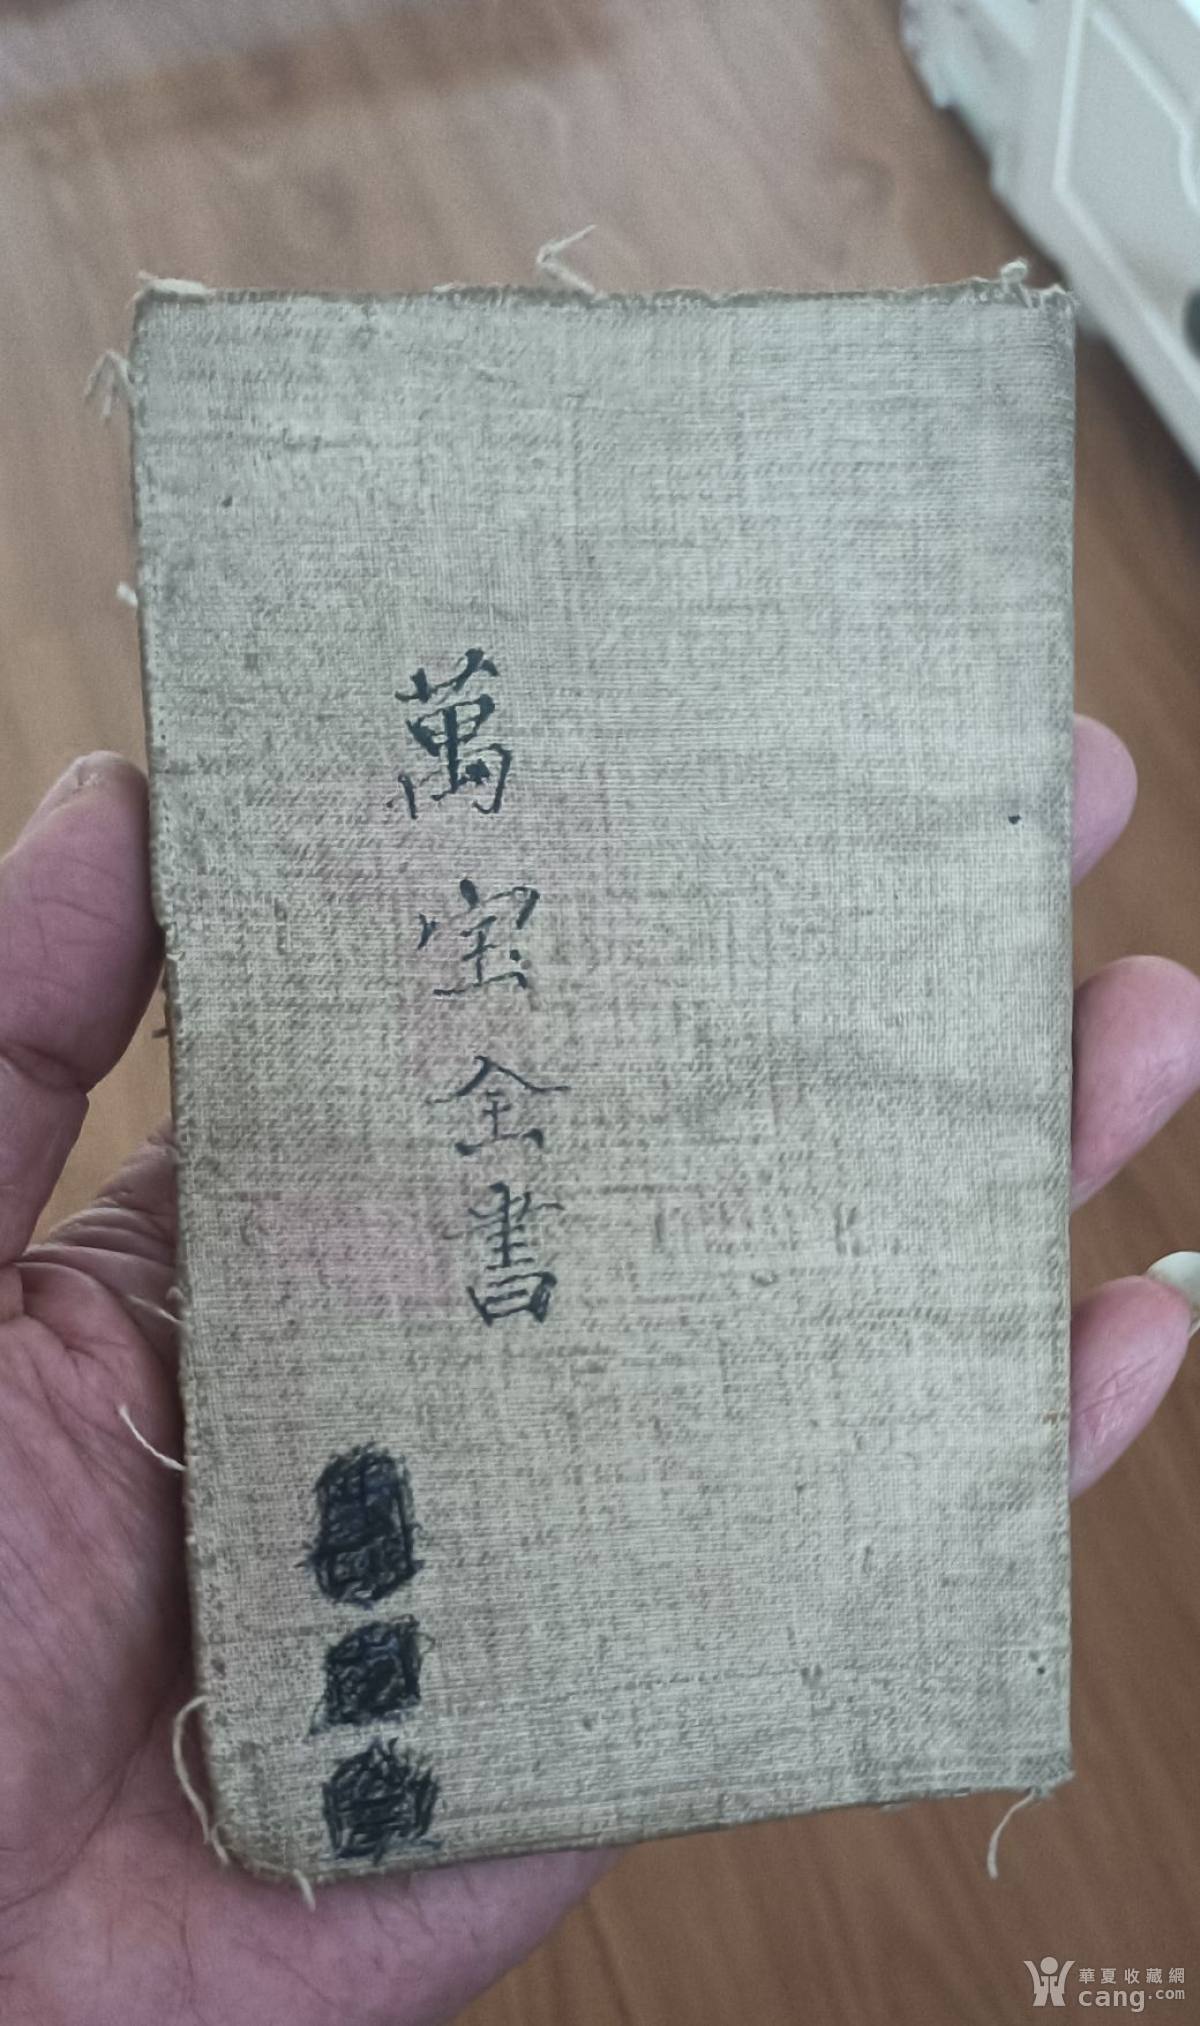 萬宝全書
華夏收藏網
cang.com